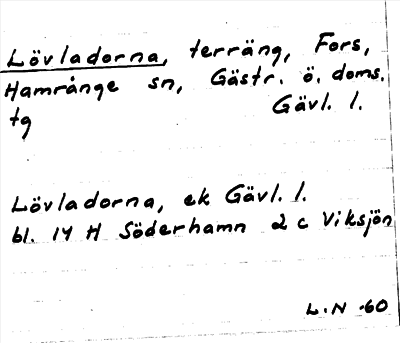 Lövladorna, terräng, Fors,
Hamrånge sn, Gästr. ö. doms.
tg Gävl. l.
Lövladorna, ek Gävl. l.
bl. 14 H Söderhamn 2 c Viksjön
L.N -60